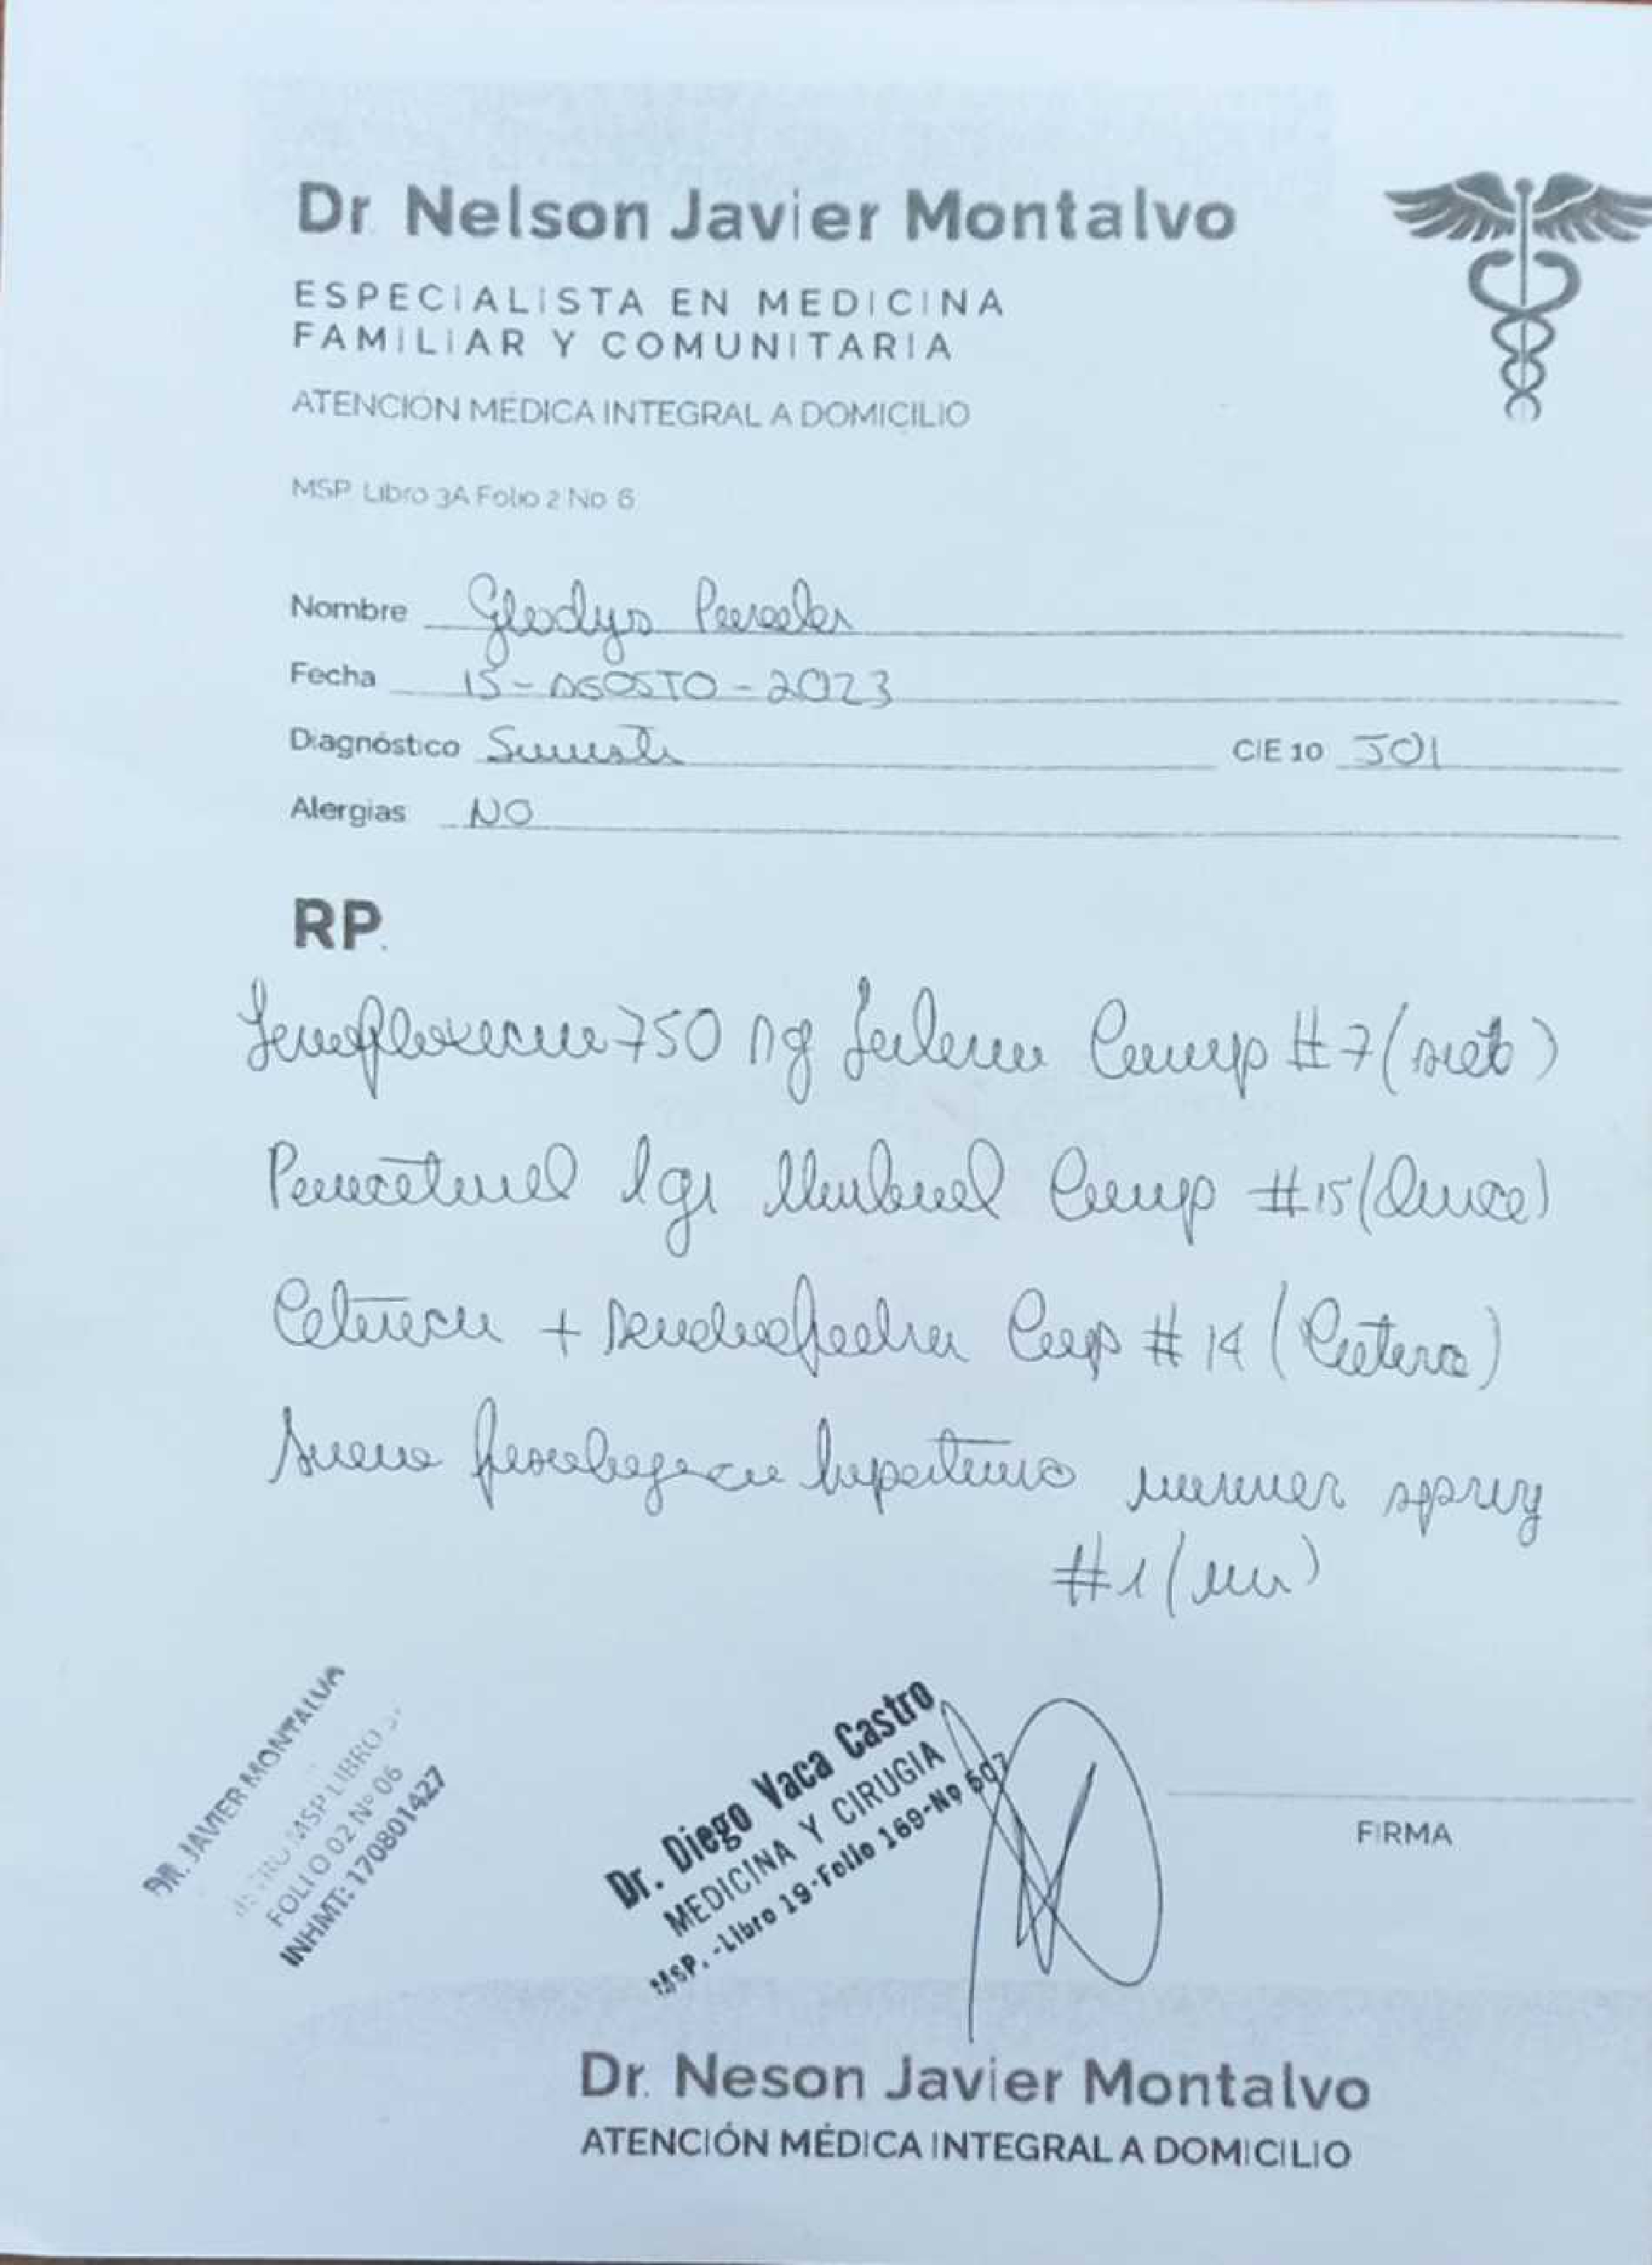 Dr. Nelson Javier Montalvo
ESPECIALISTA EN MEDICINA
FAMILIAR Y COMUNITARIA
ATENCIÓN MÉDICA INTEGRAL A DOMICILIO
MSP. Libro 3A Folio 2 No 6
Nombre Gladys
Fecha 15-AGOSTO-2023
Diagnóstico Sinusitis CIE 10 J01
Alergias NO
RP.
Levofloxacina 750 mg Comp #7 (siete)
Paracetamol 1gr Comp #15 (Quince)
Cetirizina + Pseudoefedrina Cap #14 (Catorce)
Suero fisiologico hipertonico spray
#1 (un)
DR. JAVIER MONTALVO
MSP LIBRO
FOLIO 02 Nº 06
INHMT: 170801427
Dr. Diego Vaca Castro
MEDICINA Y CIRUGIA
MSP.-Libro 19-Folio 169-Nº 507
FIRMA
Dr. Neson Javier Montalvo
ATENCIÓN MÉDICA INTEGRAL A DOMICILIO